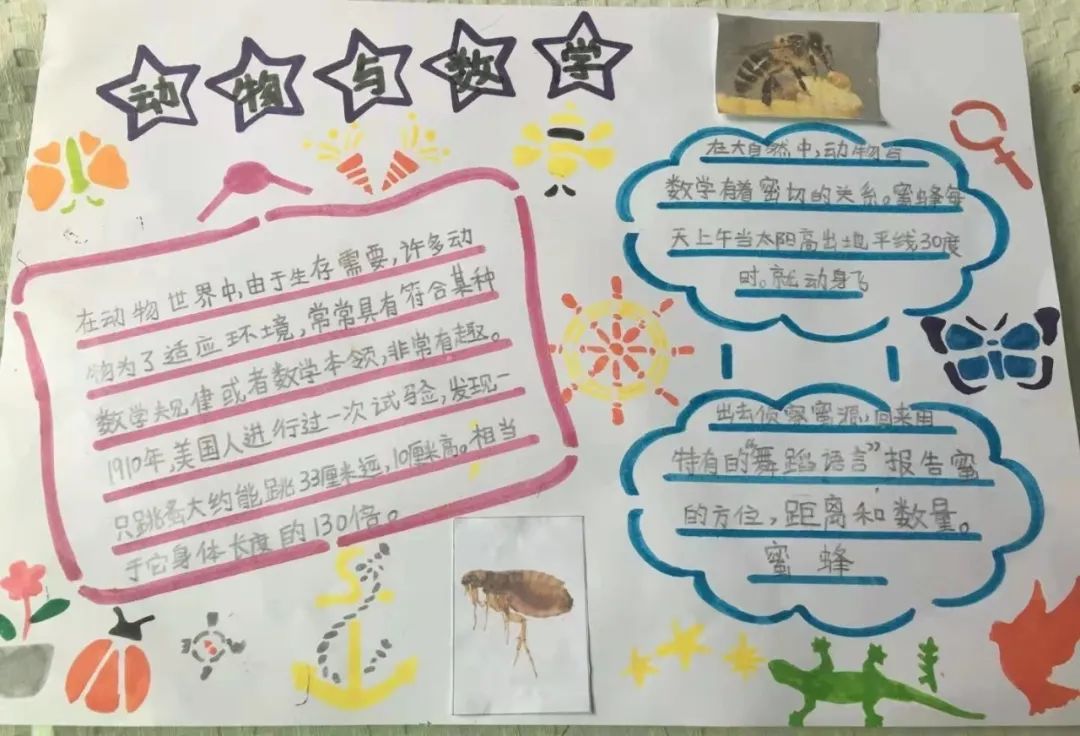 动物与数学
在动物世界中,由于生存需要,许多动
物为了适应环境,常常具有符合某种
数学规律或者数学本领,非常有趣。
1910年,美国人进行过一次试验,发现一
只跳蚤大约能跳33厘米远,10厘米高。相当
于它身体长度的130倍。
在大自然中,动物与
数学有着密切的关系。蜜蜂每
天上午当太阳高出地平线30度
时。就动身飞
出去侦察蜜源,回来用
特有的“舞蹈语言”报告蜜
的方位,距离和数量。
蜜蜂